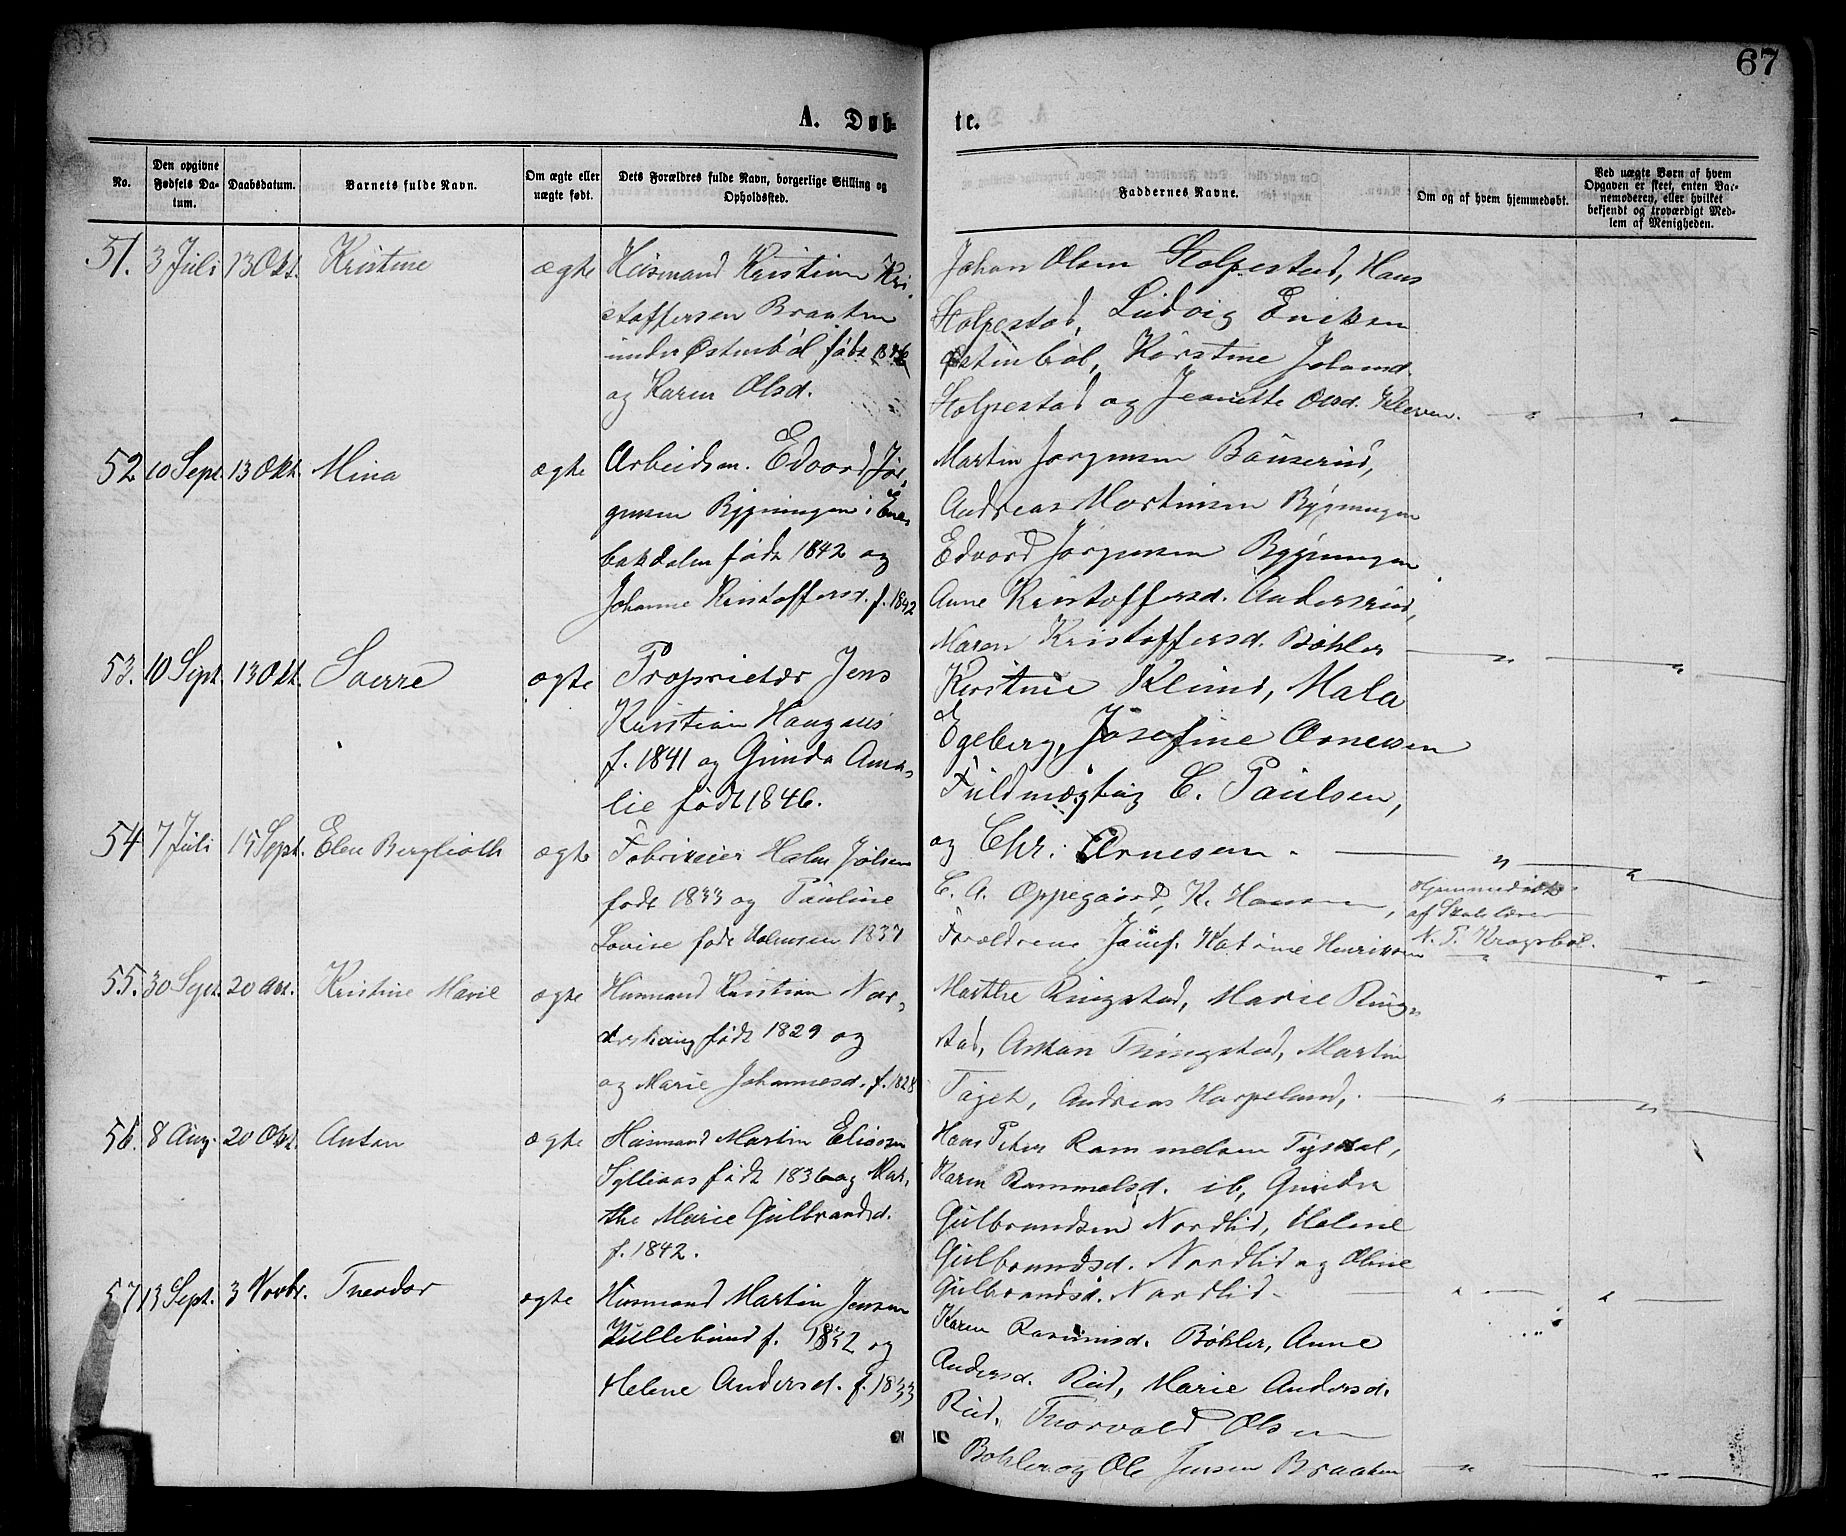 67
A. Døb-
te.
No.
Den opgivne
Fødsels Da-
tum.
Daabsdatum.
Barnets fulde Navn.
Om ægte eller
uægte født.
Dets Forældres fulde Navn, borgerlige Stilling og
Opholdssted.
Faddernes Navne.
Om og af hvem hjemmedøbt.
Ved uægte Børn af hvem
Opgaven er skeet, enten Bar-
nemoderen, eller hvilket
bekjendt og troværdigt Med-
lem af Menigheden.
51. 3 Juli 13 Okt. Kristine ægte
Husmand Kristian Kri-
stoffersen Braaten
under Østenbøl født
og Karen Olsd.
Johan Olsen Stolpestad, Hans
Stolpestad, Ludvig Eriksen
Østenbøl, Kirstine
Stolpestad og Jeanette Olsd. Kleven.
52 10 Sept. 13 Okt. Mina ægte
Arbeidsm. Edvard Jør-
gensen Bygningen i Ene-
bakdalen født 1842 og
Johanne Kristoffersd. f. 1842
Martin Jørgensen
Andreas Mortensen Bygningen
Edvard Jørgensen Bygningen
Anne Kristoffersd. Andersrud,
Maren Kristoffersd. Bøhler
53. 10 Sept. 13 Okt. Sverre ægte
Proprietær Jens
Kristian Haugaas
f. 1841 og Gunda Ama-
lie født 1846.
Kirstine Klund, Mala
Egeberg, Josefine Arnesen
Fuldmægtig C. Paulsen,
og Chr. Arnesen.
54 7 Juli 15 Sept. Elen Berglioth ægte
Fabrikeier Halm Jølsen
født 1833 og Pauline
Lovise født Holmsen 1837
C. A. Oppegaard, K. Hansen,
Forældrene Katrine Henriksen
Hjemmedøbt
af Skolelærer
N. P. Krogsbøl.
55. 30 Sept. 20 Okt. Kristine Marie ægte
Husmand Kristian Nor-
derhaug født 1829 og
og Marie Johannesd. f. 1828
Marthe Ringstad, Marie Ring-
stad, Anton Ringstad, Martin
Taget, Andreas Harpeland,
56. 8 Aug. 20 Okt. Anton ægte
Husmand Martin Eliassen
Sylliaas født 1836 og Mar-
the Marie Gulbrandsd.
f. 1842.
Hans Peter Rammelsen Tysdal,
Karen Rammelsd. ib, Gunda
Gulbrandsen Nordlid, Helene
Gulbrandsd. Nordlid og Oline
Gulbrandsd. Nordlid.
57 13 Sept. 3 Novbr. Theodor ægte
Husmand Martin Jensen
Kullebund f. 1832 og
Helene Andersd. f. 1833
Karen Rasmusd. Bøhler, Anne
Andersd. Rud, Marie Andersd.
Rud, Thorvald Olsen
Bøhler og Ole Jensen Braaten